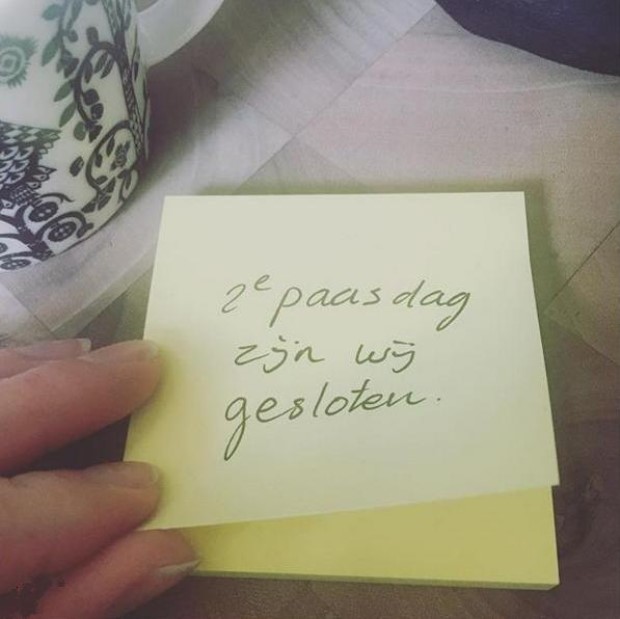 2e paasdag
zijn wij
gesloten.